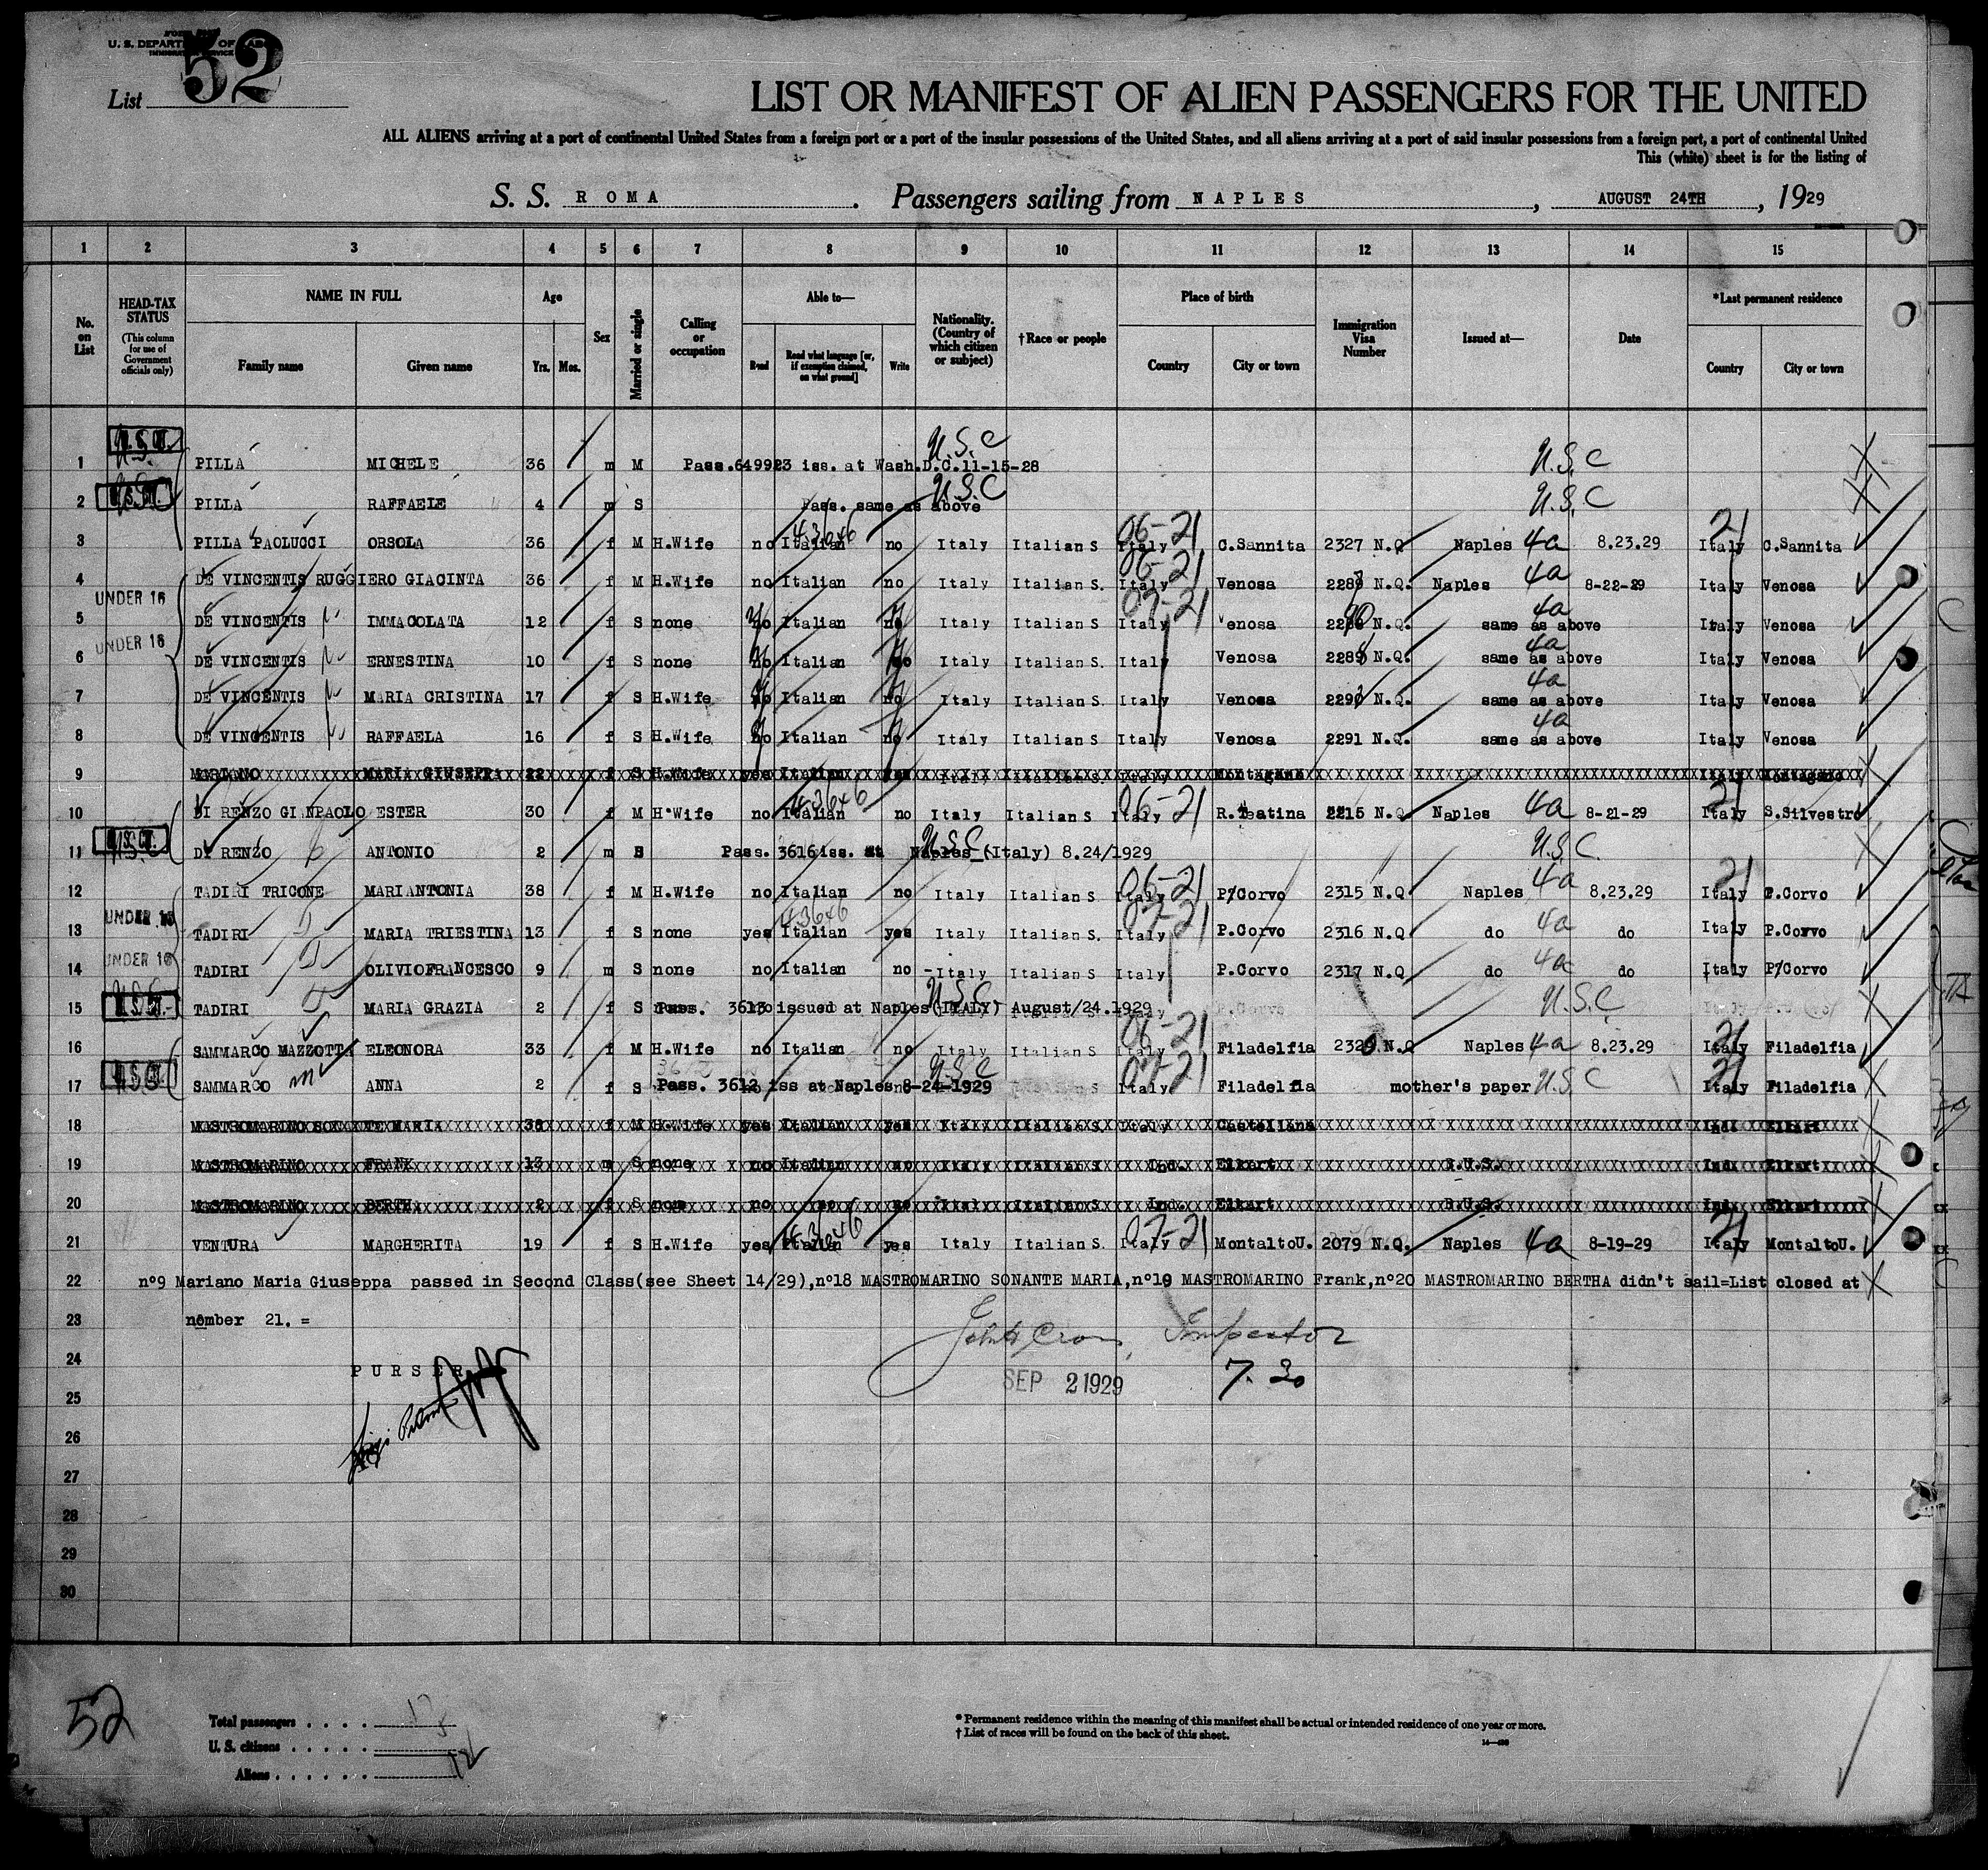 FORM
U. S. DEPARTMENT OF LABOR
IMMIGRATION SERVICE
List 52
LIST OR MANIFEST OF ALIEN PASSENGERS FOR THE UNITED
ALL ALIENS arriving at a port of continental United States from a foreign port or a port of the insular possessions of the United States, and all aliens arriving at a port of said insular possessions from a foreign port, a port of continental United
This (white) sheet is for the listing of
S. S. ROMA . Passengers sailing from NAPLES , AUGUST 24TH , 1929
1 2 3 4 5 6 7 8 9 10 11 12 13 14 15
No. on List
HEAD-TAX STATUS (This column for use of Government officials only)
NAME IN FULL Family name Given name
Age Yrs. Mos.
Sex
Married or single
Calling or occupation
Able to— Read Read what language [or, if exemption claimed, on what ground] Write
Nationality. (Country of which citizen or subject)
†Race or people
Place of birth Country City or town
Immigration Visa Number
Issued at—
Date
*Last permanent residence Country City or town
1 U.S.C. PILLA MICHELE 36 m M Pass.649923 iss. at Wash.D.C.11-15-28 U.S.C U.S.C
2 U.S.C. PILLA RAFFAELE 4 m S Pass. same as above U.S.C U.S.C
3 PILLA PAOLUCCI ORSOLA 36 f M H.Wife no Italian 43646 no Italy Italian S Italy 06-21 C.Sannita 2327 N.Q Naples 4a 8.23.29 Italy 21 C.Sannita
4 DE VINCENTIS RUGGIERO GIACINTA 36 f M H.Wife no Italian no Italy Italian S. Italy 06-21 Venosa 2287 N.Q. Naples 4a 8-22-29 Italy Venosa
5 UNDER 16 DE VINCENTIS IMMACOLATA 12 f S none no Italian no Italy Italian S Italy 07-21 Venosa 2290 N.Q. same as above 4a Italy Venosa
6 UNDER 16 DE VINCENTIS ERNESTINA 10 f S none no Italian no Italy Italian S. Italy Venosa 2289 N.Q. same as above 4a Italy Venosa
7 DE VINCENTIS MARIA CRISTINA 17 f S H.Wife no Italian no Italy Italian S. Italy Venosa 2290 N.Q. same as above 4a Italy Venosa
8 DE VINCENTIS RAFFAELA 16 f S H.Wife no Italian no Italy Italian S Italy Venosa 2291 N.Q. same as above 4a Italy Venosa
9 MARIANO MARIA GIUSEPPA 22 f S H.Wife yes Italian yes Italy Italian S. Italy Montagano Italy Montagano
10 DI RENZO GIANPAOLO ESTER 30 f M H.Wife no Italian 43646 no Italy Italian S Italy 06-21 R.Teatina 2215 N.Q Naples 4a 8-21-29 Italy 21 S.Silvestro
11 U.S.C. DI RENZO ANTONIO 2 m S Pass. 3616 iss. at Naples (Italy) 8.24/1929 U.S.C U.S.C.
12 TADIRI TRICONE MARIANTONIA 38 f M H.Wife no Italian no Italy Italian S Italy 06-21 P/Corvo 2315 N.Q Naples 4a 8.23.29 Italy 21 P.Corvo
13 UNDER 16 TADIRI MARIA TRIESTINA 13 f S none yes Italian 43646 yes Italy Italian S. Italy 07-21 P.Corvo 2316 N.Q do 4a do Italy P.Corvo
14 UNDER 16 TADIRI OLIVIOFRANCESCO 9 m S none no Italian no -Italy Italian S Italy P.Corvo 2317 N.Q do 4a do Italy P/Corvo
15 U.S.C. TADIRI MARIA GRAZIA 2 f S Pass. 3613 issued at Naples(ITALY) August/24.1929 U.S.C U.S.C
16 SAMMARCO MAZZOTTA ELEONORA 33 f M H.Wife no Italian no Italy Italian S Italy 06-21 Filadelfia 2320 N.Q Naples 4a 8.23.29 Italy 21 Filadelfia
17 U.S.C. SAMMARCO ANNA 2 f S Pass. 3612 iss at Naples 8-24-1929 U.S.C Italy 07-21 Filadelfia mother's paper U.S.C Italy 21 Filadelfia
18 MASTROMARINO SONANTE MARIA 38 f M H.Wife yes Italian yes Italy Italian S Italy Castellana Ind. Elkart
19 MASTROMARINO FRANK 13 m S none no Italian no Italy Italian S Ind. Elkart B.U.S. Ind. Elkart
20 MASTROMARINO BERTHA 2 f S none no no no Italy Italian S Ind. Elkart B.U.S. Ind. Elkart
21 VENTURA MARGHERITA 19 f S H.Wife yes Italian 43646 yes Italy Italian S. Italy 07-21 MontaltoU. 2079 N.Q. Naples 4a 8-19-29 Italy 21 MontaltoU.
22 n°9 Mariano Maria Giuseppa passed in Second Class(see Sheet 14/29),n°18 MASTROMARINO SONANTE MARIA,n°19 MASTROMARINO Frank,n°20 MASTROMARINO BERTHA didn't sail=List closed at
23 number 21. =
Inspector
24 PURSER
SEP 2 1929 7.30
25
26
27
28
29
30
52
Total passengers . . . . 17
U. S. citizens . . . . . 5
Aliens . . . . . . 12
* Permanent residence within the meaning of this manifest shall be actual or intended residence of one year or more.
† List of races will be found on the back of this sheet.